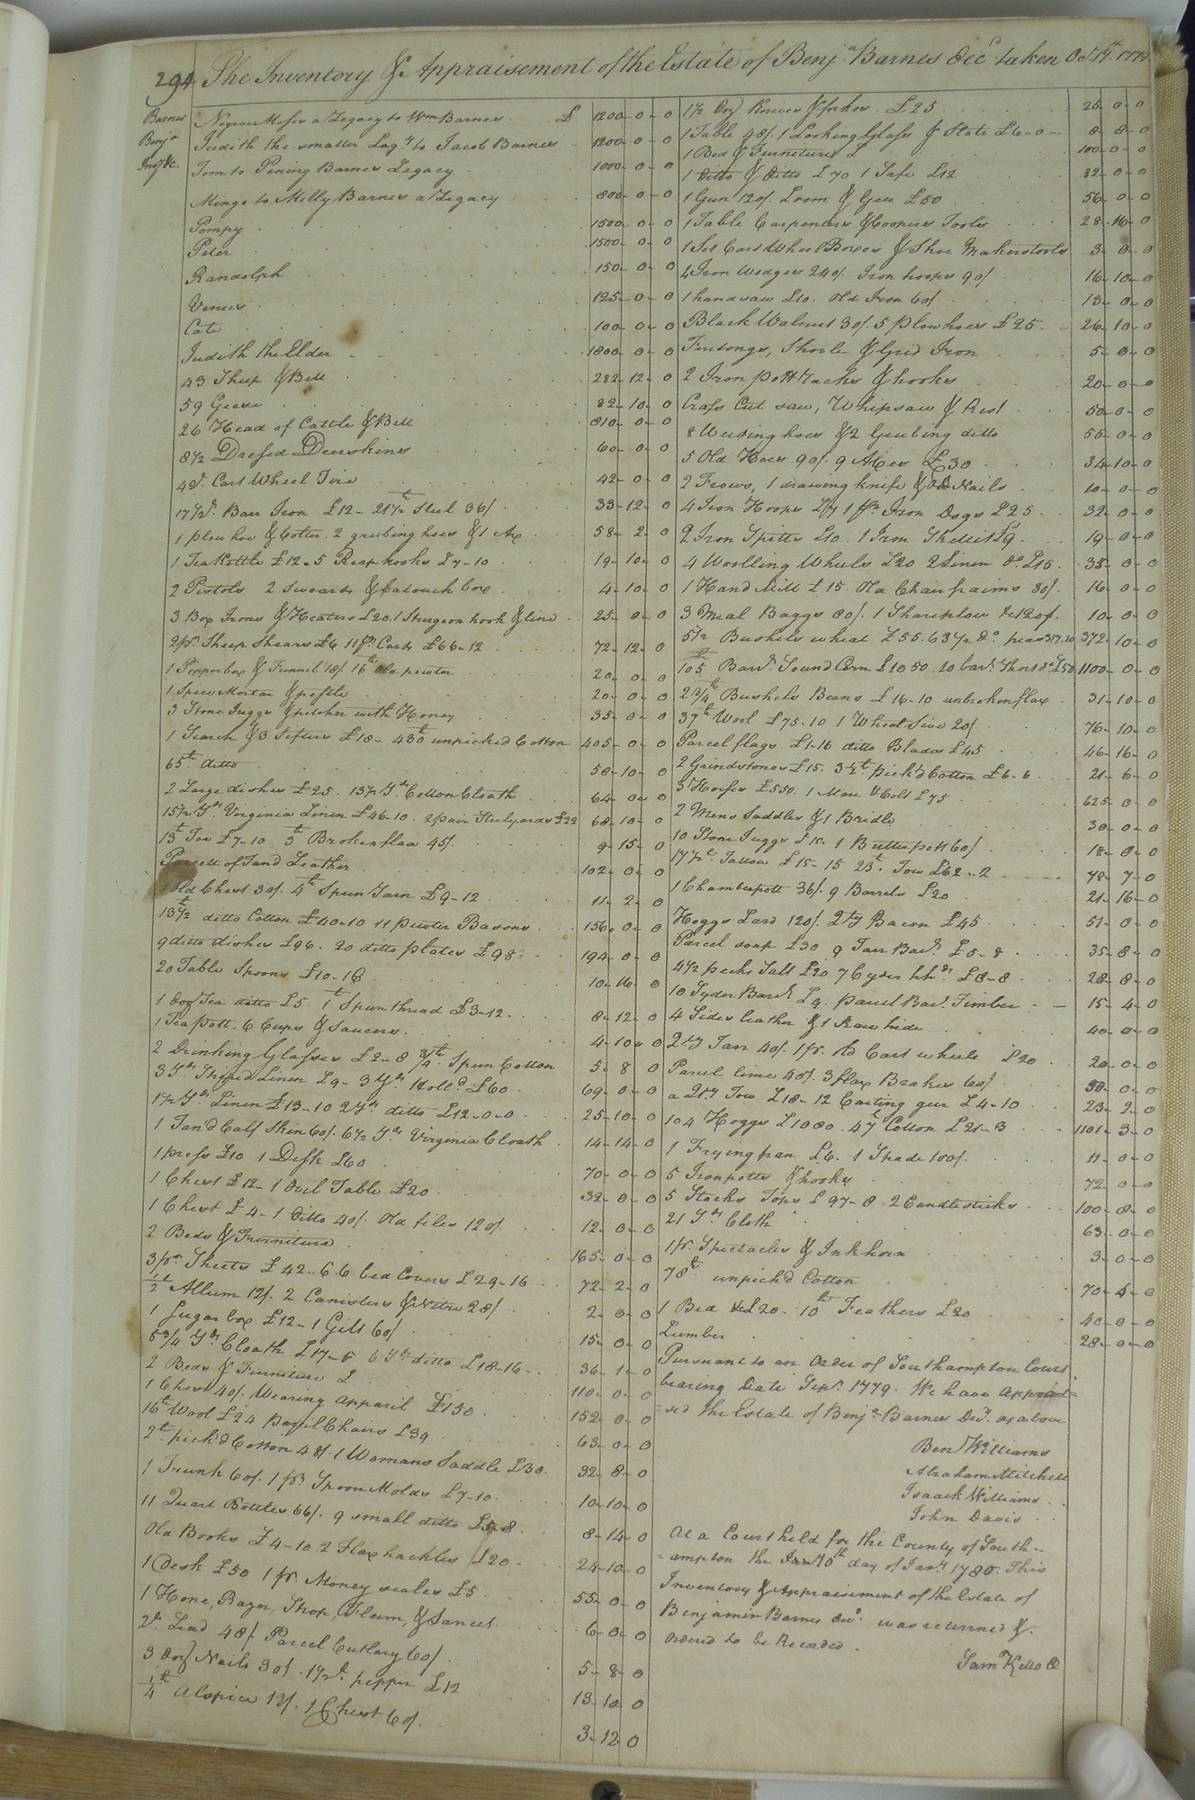 294 The Inventory & Appraisement of the Estate of Benja Barnes Decd taken Oct
Barnes
Benja
Invy &c.
Negroe Moses a Legacy to Wm Barnes £ 1200-0-0
Judith the smaller Lagy to Jacob Barnes 1200-0-0
Tom to Pening Barnes Legacy 1000-0-0
Mingo to Milly Barnes a Legacy 800-0-0
Pompy 1500-0-0
Peter 1500-0-0
Randolph 150-0-0
Venus 125-0-0
Cate 100-0-0
Judith the Elder 1800-0-0
43 Sheep & Bell 282-12-0
59 Geese 82-10-0
26 Head of Cattle & Bell 810-0-0
8½ Dressed Deerskins 60-0-0
4 Cart Wheel Tire 42-0-0
Barr Iron £12- 21½ Steel 36/ 33-12-0
1 plow hoe & Colter 2 grubing hoes & 1 Ax 58-2-0
1 Tea Kettle £12-5 Reap hooks £7-10 19-10-0
2 Pistols 2 Swoards & Catouch box 4-10-0
3 Box Irons & Heaters £20. 1 Sturgeon hook & line 25-0-0
2 pr. Sheep Shears £6 11 pr Cards £66-12 72-12-0
1 Pepperbox & Funnel 18/ 16 Old pewter 20-0-0
1 Spice Mortar & pestle 20-0-0
3 Stone Juggs & pitcher with Honey 35-0-0
1 Search & 3 Sifters £18- 430 unpicked Cotton 405-0-0
65 ditto 58-10-0
2 Large dishes £25. 13½ Yds Cotton Cloath 64-0-0
15½ Yds Virginia Linen £46-10. 2 pair Steelyards £22 68-10-0
13 Tow £7-10 3 Broken flax 45/ 9-15-0
Parcell of Tand Leather 102-0-0
1 Old Chest 30/. 4 Spun Yarn £9-12 11-2-0
13½ ditto Cotton £40-10 11 pewter Basons 156-0-0
9 ditto dishes £96. 20 ditto plates £98 194-0-0
20 Table Spoons £10-16 10-16-0
1 doz Tea ditto £5. 1 Spun thread £3-12 8-12-0
1 Tea pott. 6 Cups & Saucers 4-10-0
2 Drinking Glasses £2-8 ¾ Spun Cotton 5-8-0
3 Yds Striped Linen £9- 3 Yds £60 69-0-0
1½ Yds Linen £13-10 2 Yds ditto £12-0-0 25-10-0
1 Tan'd Calf Skin 60/. 6½ Yds Virginia Cloath 14-14-0
1 press £10 1 Desk £60 70-0-0
1 Chest £12- 1 Ovil Table £20 32-0-0
1 Chest £4- 1 ditto 40/. Old files 120/. 12-0-0
2 Beds & Furniture 165-0-0
3 pr. Sheets £42- 6 bed Covers £29-16 72-2-0
½ Allum 12/. 2 Canisters & Nitre 28/ 2-0-0
1 Sugar box £12- 1 Gilt 60/ 15-0-0
5¾ Yds Cloath £17-5 6 Yds ditto £18-16 36-1-0
2 Beds & Furniture £ 110-0-0
1 Chest 40/. Wearing apparil £150 152-0-0
16 Wool £24 Chairs £39 63-0-0
2 pick'd Cotton 48/. 1 Womans Saddle £30 32-8-0
1 Trunk 60/. 1 pr Spoon Molds £7-10 10-10-0
11 Quart Bottles 66/. 9 small ditto 8-14-0
Old Books £4-10. 2 Flax hackles £20 24-10-0
1 Desk £50 1 pr. Money scales £5 55-0-0
1 Hone, Razor, Strop, Fleem, & Lancet 6-0-0
Lead 48/. Parcel Cutlary 60/. 5-8-0
3 doz Nails 30/. 1½ pepper £12 13-10-0
¼ Alspice 12/. 1 Chest 60/. 3-12-0
1½ Doz Knives & forks £25 25-0-0
1 Table 48/. 1 Looking Glass & Slate £6-0- 8-8-0
1 Bed & Furniture £ 100-0-0
1 Ditto & Ditto £70 1 Safe £12 82-0-0
1 Gun 120/. Loom & Geer £50 56-0-0
1 Table Carpenters & Coopers Tools 28-16-0
1 Set Cart Wheel Boxes & Shoe Makers tools 3-0-0
4 Iron Wedges 240/. Iron hoops 90/ 16-10-0
1 handsaw £10. Old Iron 60/ 13-0-0
Black Walnut 30/. 5 plow hoes £25 26-10-0
Firetongs, Shovle & Grid Iron 5-0-0
2 Iron pott racks & hooks 20-0-0
Crass Cut saw, Whipsaw & Rest 50-0-0
8 Weeding hoes & 2 Grubing ditto 55-0-0
5 Old Hoes 90/. 9 Axes £30 34-10-0
2 Frows, 1 drawing knife & Old Nails 10-0-0
4 Iron Hoops £7 1 pr Iron Dogs £25 32-0-0
2 Iron Spitts £10. 1 Iron Skillit £9 19-0-0
4 Woolling Wheels £20 2 Linen do £15 35-0-0
1 Hand Mill £15. Old Chair fraims 20/. 16-0-0
3 Meal Baggs 80/. 1 Shareplow &c 120/. 10-0-0
5½ Bushels wheat £55. 63½ do peas 317-10 372-10-0
105 Barrs Sound Corn £1050. 20 barrs Short do £50 1100-0-0
2¾ Bushels Beans £16-10 unbroken flax 31-10-0
37 Wool £75-10 1 Wheat Sive 20/ 76-10-0
Parcel flags £1-16 ditto Blades £45 46-16-0
2 Grindstones £15. 3½ pick'd Cotton £6-6 21-6-0
3 Horses £550. 1 Mare & Colt £75 625-0-0
2 Mens Saddles & 1 Bridle 30-0-0
10 Stone Juggs £15. 1 Butter pott 60/ 18-0-0
17½ Tallow £15-15 23 Tow £62-2 78-7-0
1 Chamberpott 36/. 9 Barrels £20 21-16-0
Hoggs Lard 120/. Qty Bacon £45 51-0-0
Parcel soap £30 9 Tarr Barrs £5-8 35-8-0
4½ pecks Salt £20 7 Cyder hhds £8-8 28-8-0
10 Syder Barrs £9. parcel Bar. Timber 15-4-0
4 Sides leather & 1 Raw hide 40-0-0
Qty Tarr 40/. 1 pr. Old Cart wheels £20 20-0-0
Parcel lime 40/. 3 flax Brakes 60/ 50-0-0
a Qty Tow £18-12 Carting geer £4-10 23-2-0
104 Hoggs £1080. 47 Cotton £21-3 1101-3-0
1 Frying pan £6. 1 Spade 100/. 11-0-0
5 Iron potts & hooks 72-0-0
5 Stacks Tops £97-8. 2 Candlesticks 100-8-0
21 Yds Cloth 63-0-0
1 pr. Spectacles & Inkhorn 3-0-0
78 unpick'd Cotton 70-4-0
1 Bed &c £20. 10 Feathers £20 40-0-0
Lumber 28-0-0
Pursuant to an Order of Southampton Court
bearing Date Sepr. 1779. We have apprais=
=ed the Estate of Benja Barnes Decd. as above
Benj Williams
Abraham Mitchell
Isaack Williams
John Davis
At a Court held for the County of South=
=ampton the day of Jany 1780. This
Inventory & Appraisement of the Estate of
Benjamin Barnes decd. was returned &
Ordered to be Recorded.
Saml Kello